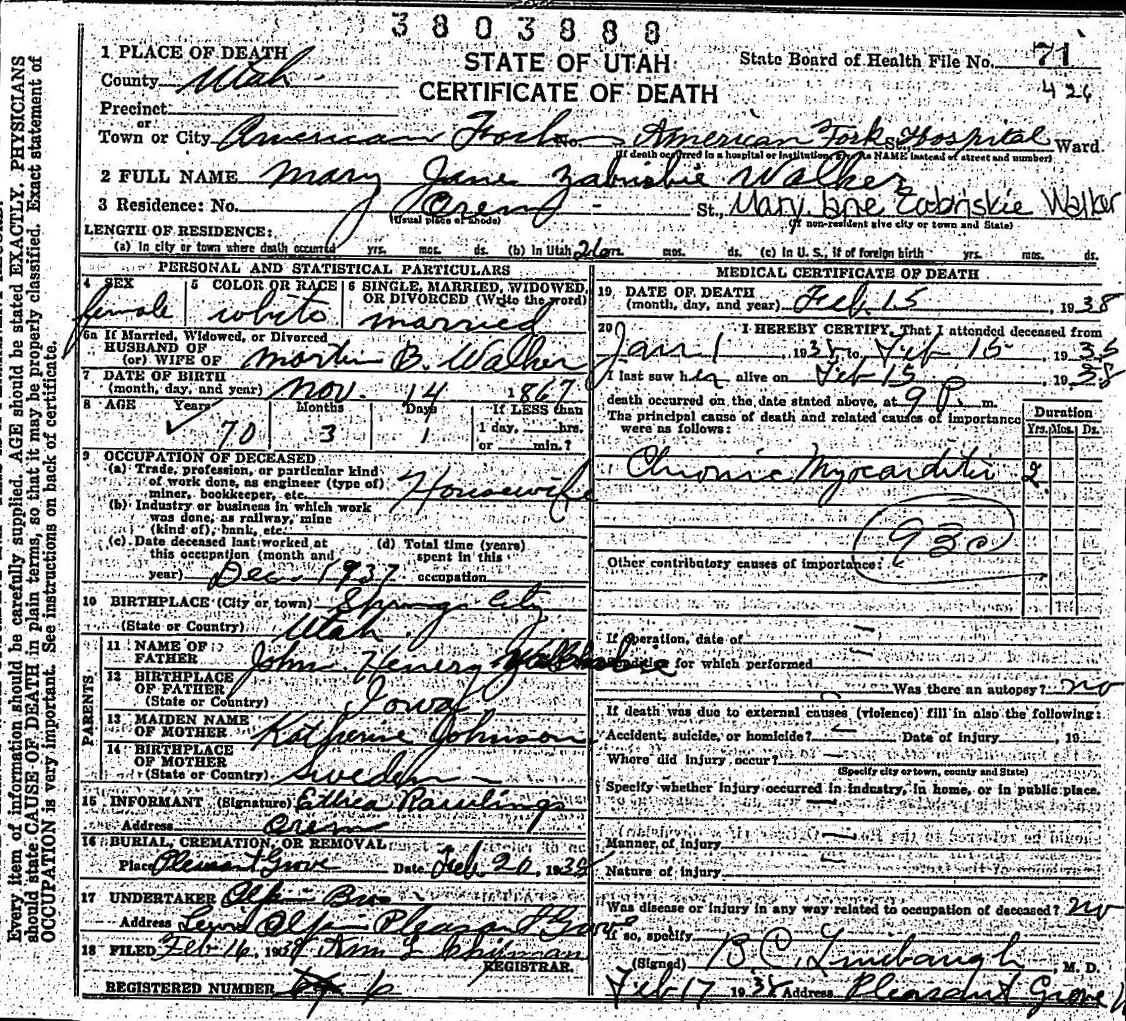 3803888
1 PLACE OF DEATH
STATE OF UTAH
State Board of Health File No. 71
County Utah
CERTIFICATE OF DEATH
426
Precinct
or
Town or City American Fork No. American Fork Hospital St. Ward.
(If death occurred in a hospital or institution, its NAME instead of street and number)
2 FULL NAME Mary Jane Zabriskie Walker
3 Residence: No. Orem St., Mary Jane Zabriskie Walker
(Usual place of abode) (If non-resident give city or town and State)
LENGTH OF RESIDENCE:
(a) In city or town where death occurred yrs. mos. ds. (b) In Utah yrs. mos. ds. (c) In U. S., if of foreign birth yrs. mos. ds.
PERSONAL AND STATISTICAL PARTICULARS
4 SEX female
5 COLOR OR RACE white
6 SINGLE, MARRIED, WIDOWED, OR DIVORCED (Write the word) married
6a If Married, Widowed, or Divorced
HUSBAND OF
(or) WIFE OF B. Walker
7 DATE OF BIRTH
(month, day, and year) Nov. 14 1867
8 AGE Years Months Days If LESS than
70 3 1 1 day, hrs.
or min.?
9 OCCUPATION OF DECEASED
(a) Trade, profession, or particular kind
of work done, as engineer (type of)
miner, bookkeeper, etc. Housewife
(b) Industry or business in which work
was done, as railway, mine
(kind of), bank, etc.
(c) Date deceased last worked at
this occupation (month and
year) Dec. 1937
(d) Total time (years)
spent in this
occupation
10 BIRTHPLACE (City or town) Spring City
(State or Country) Utah
PARENTS
11 NAME OF
FATHER John Henery
12 BIRTHPLACE
OF FATHER
(State or Country) Iowa
13 MAIDEN NAME
OF MOTHER Katherine Johnson
14 BIRTHPLACE
OF MOTHER
(State or Country) Sweden
15 INFORMANT (Signature) Rawlings
Address Orem
16 BURIAL, CREMATION, OR REMOVAL
Place Pleasant Grove Date Feb. 20, 1938
17 UNDERTAKER
Address Pleasant Grove
18 FILED Feb 16, 1938
REGISTRAR.
REGISTERED NUMBER
MEDICAL CERTIFICATE OF DEATH
19 DATE OF DEATH
(month, day, and year) Feb. 15 1938
20 I HEREBY CERTIFY, That I attended deceased from
Jan 1 193 , to Feb 15 , 193
I last saw her alive on Feb 15 , 1938
death occurred on the date stated above, at 9 P. m.
The principal cause of death and related causes of importance
were as follows:
Duration
Yrs. Mos. Ds.
Chronic Myocarditis 2
93c
Other contributory causes of importance:
If operation, date of
Condition for which performed
Was there an autopsy? no
If death was due to external causes (violence) fill in also the following:
Accident, suicide, or homicide? Date of injury , 19
Where did injury occur?
(Specify city or town, county and State)
Specify whether injury occurred in industry, in home, or in public place.
Manner of injury
Nature of injury
Was disease or injury in any way related to occupation of deceased? no
If so, specify
(Signed) B C Linebaugh , M. D.
Feb 17 1938 Address Pleasant Grove
Every item of information should be carefully supplied. AGE should be stated EXACTLY. PHYSICIANS
should state CAUSE OF DEATH in plain terms, so that it may be properly classified. Exact statement of
OCCUPATION is very important. See instructions on back of certificate.